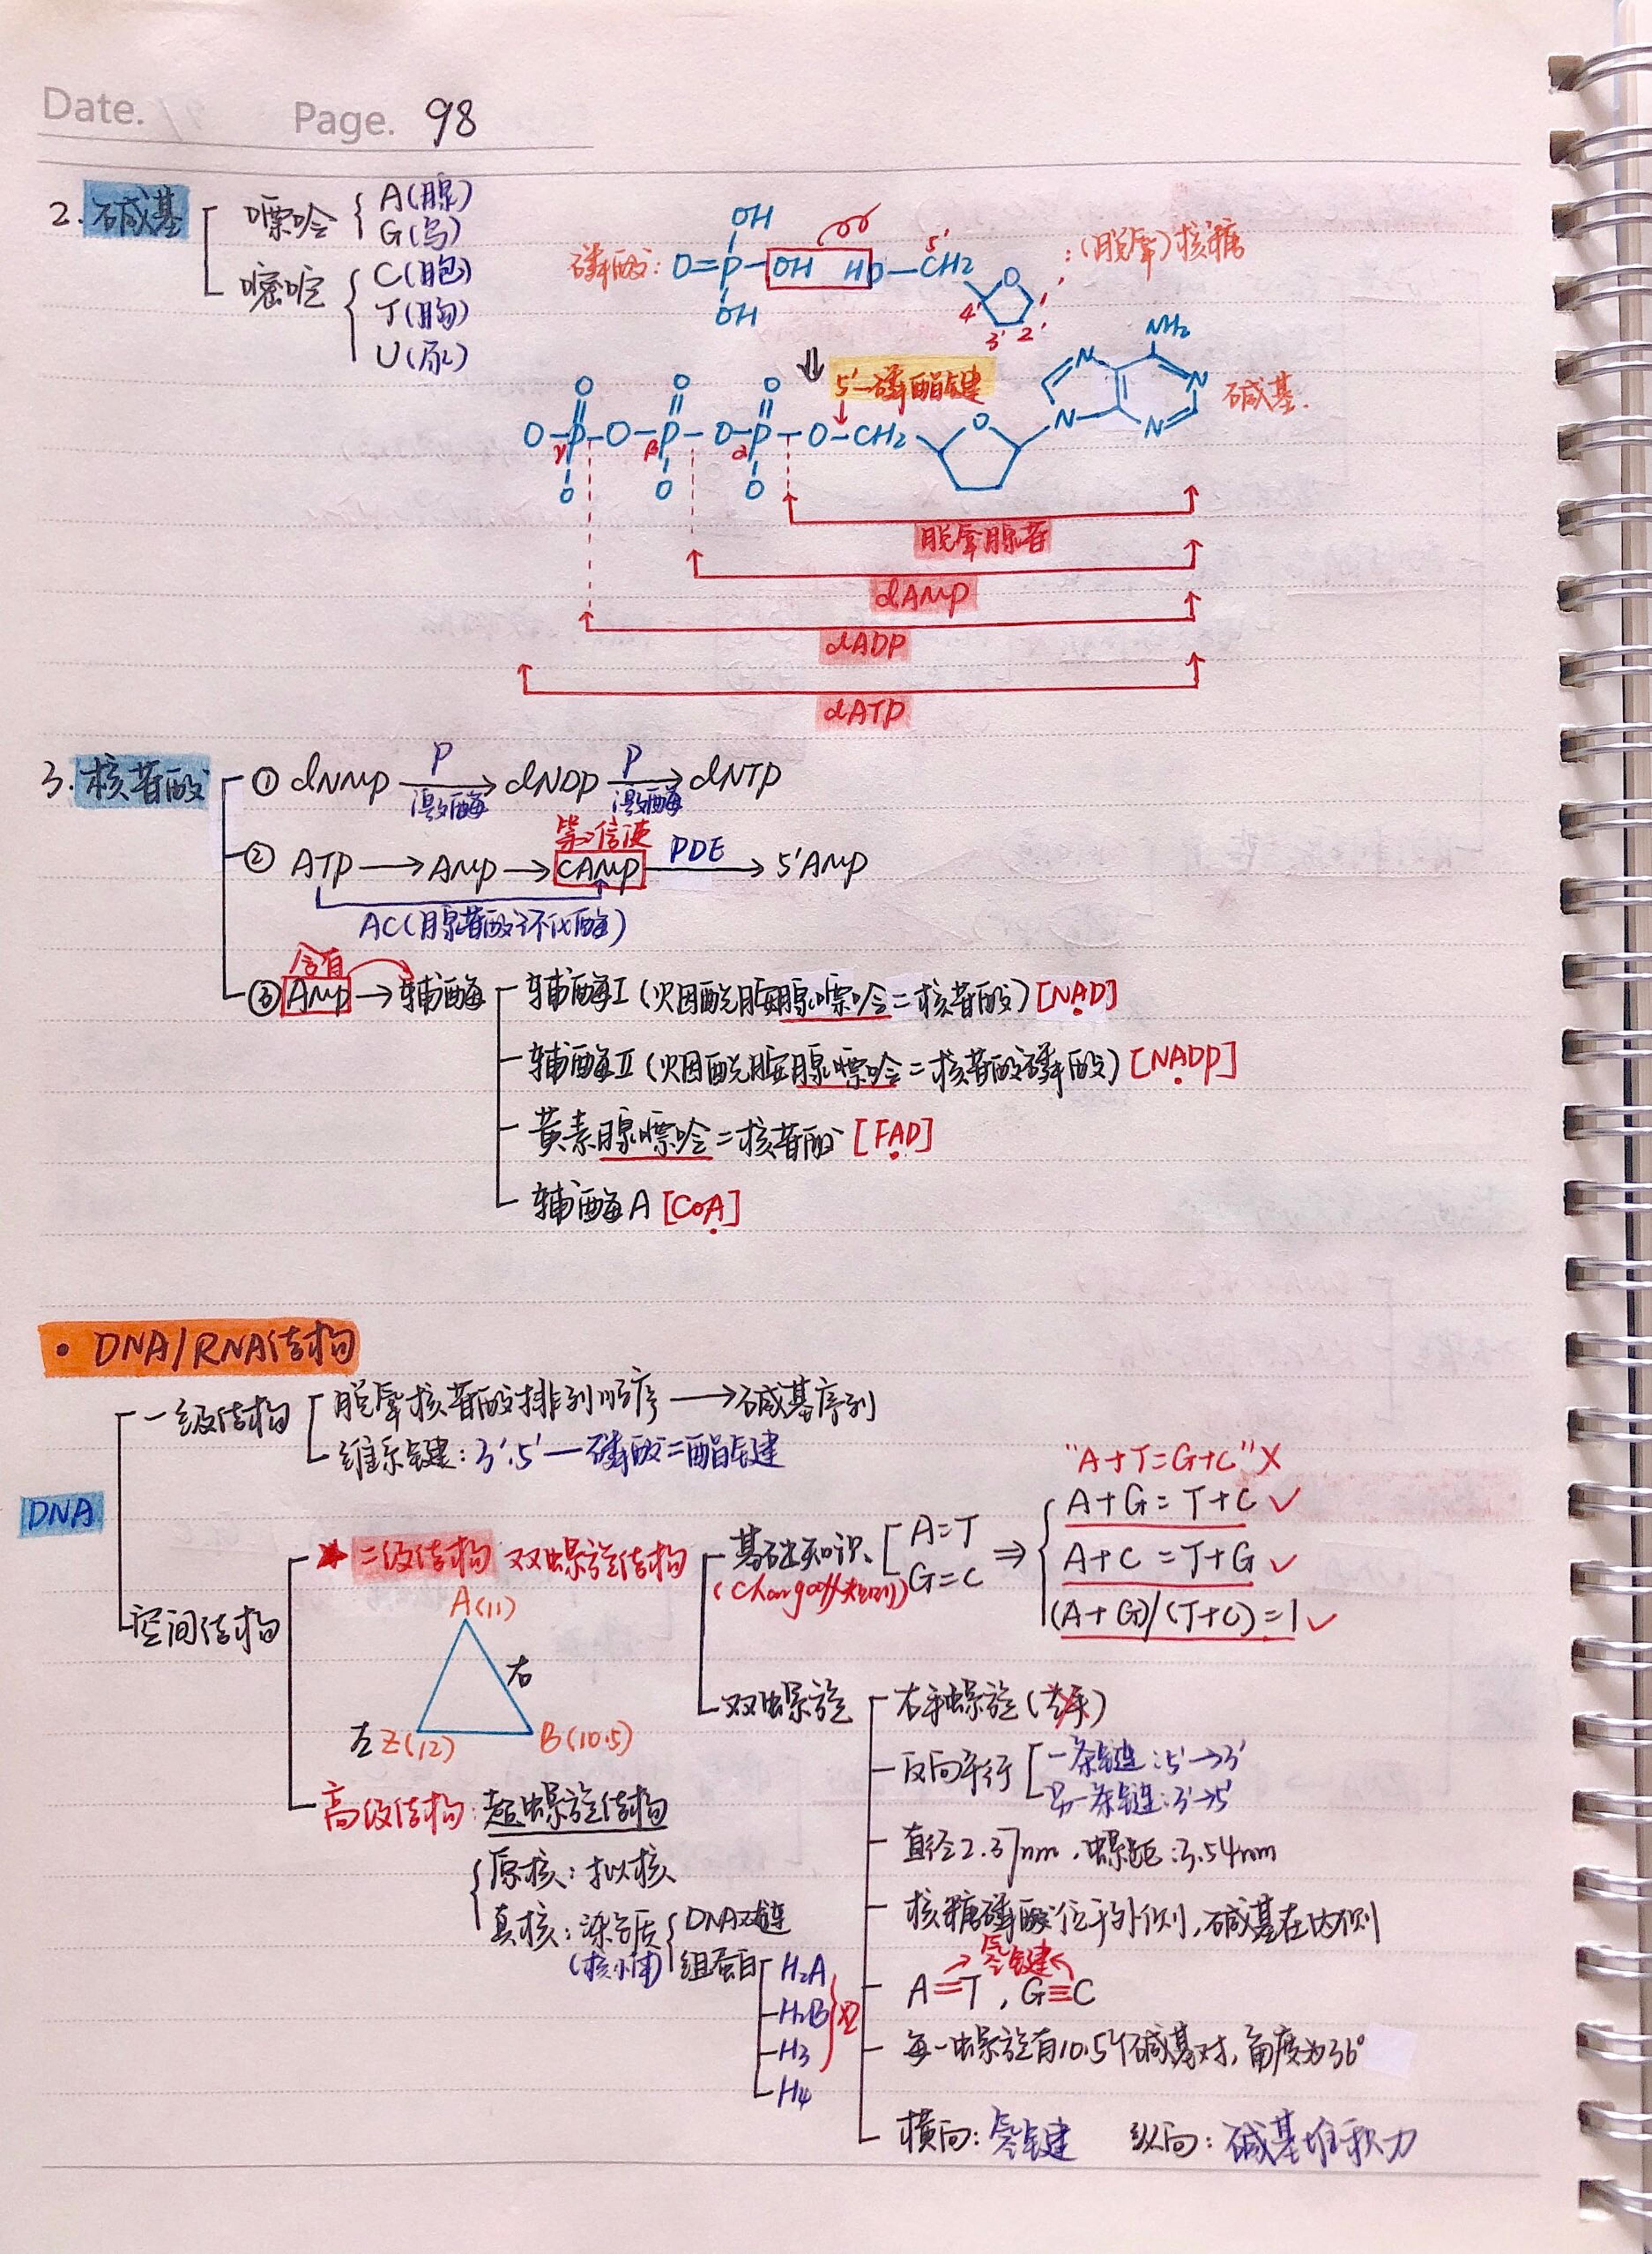 Date. Page. 98
2. 碱基
嘌呤
A(腺)
G(鸟)
嘧啶
C(胞)
T(胸)
U(尿)
磷酸: O=P-OH HO-CH2 :(脱氧)核糖
OH
OH
5' 4' 3' 2' 1'
O
5'-磷酯键
O-P-O-P-O-P-O-CH2
O O O
O O O
γ β α
O N N N N NH2
碱基.
脱氧腺苷
dAMP
dADP
dATP
3. 核苷酸
① dNMP →(P 激酶) dNDP →(P 激酶) dNTP
第二信使
② ATP → AMP → cAMP →(PDE) 5'AMP
AC(腺苷酸环化酶)
含有
③ AMP → 辅酶
辅酶I (烟酰胺腺嘌呤二核苷酸) [NAD]
辅酶II (烟酰胺腺嘌呤二核苷酸磷酸) [NADP]
黄素腺嘌呤二核苷酸 [FAD]
辅酶A [CoA]
• DNA/RNA结构
DNA
一级结构
脱氧核苷酸排列顺序 → 碱基序列
维系键: 3'.5'—磷酸二酯键
空间结构
★ 二级结构 双螺旋结构
基础知识
(Chargaff规则)
A=T
G=C
⇒
"A+T=G+C" ×
A+G=T+C ✓
A+C=T+G ✓
(A+G)/(T+C)=1 ✓
A(11)
右
左 Z(12) B(10.5)
双螺旋
右手螺旋 (左手)
反向平行
一条链: 5'→3'
另一条链: 3'→5'
直径2.37nm, 螺距: 3.54nm
核糖磷酸位于外侧, 碱基在内侧
氢键
A=T, G≡C
每一螺旋有10.5个碱基对, 角度为36°
横向: 氢键 纵向: 碱基堆积力
高级结构: 超螺旋结构
原核: 拟核
真核: 染色质
(核小体)
DNA双链
组蛋白
H2A
H2B
H3
H4